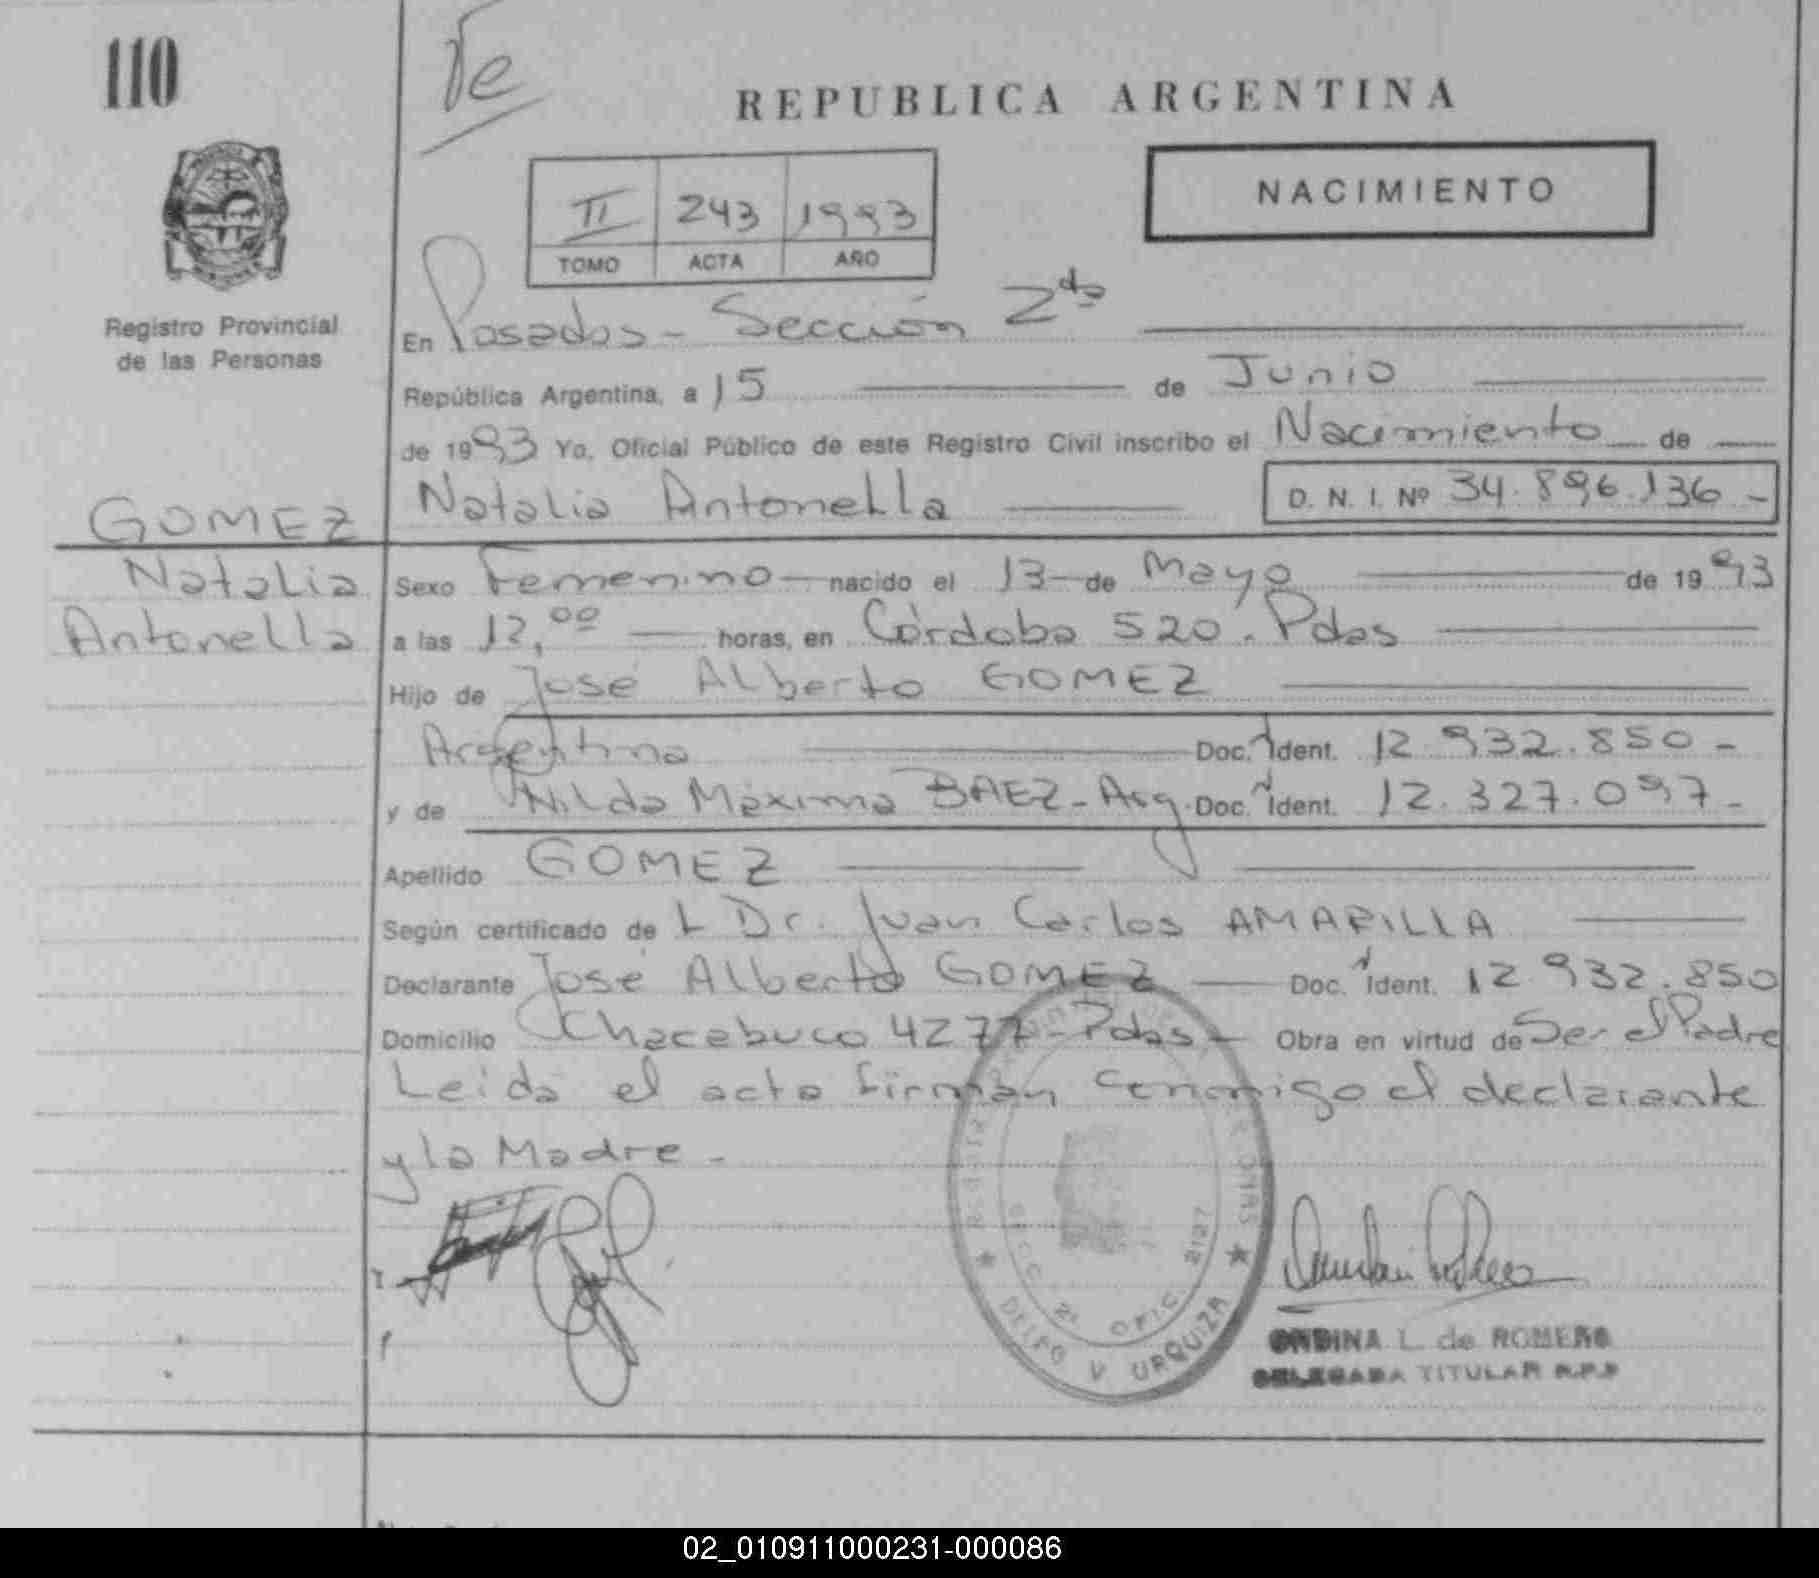 110
Te
REPUBLICA ARGENTINA
NACIMIENTO
II 243 1993
TOMO ACTA AÑO
Registro Provincial
de las Personas
En Posadas - Sección 2da
República Argentina, a 15 de Junio
de 1993 Yo, Oficial Público de este Registro Civil inscribo el Nacimiento de
Natalia Antonella D. N. I. Nº 34.896.136.-
GOMEZ
Natalia
Antonella
Sexo Femenino nacido el 13 de Mayo de 1993
a las 12,00 horas, en Córdoba 520. Pdas
Hijo de José Alberto GOMEZ
Argentina Doc. Ident. 12.932.850-
y de Nilda Máxima BAEZ-Arg. Doc. Ident. 12.327.097-
Apellido GOMEZ
Según certificado de L Dr. Juan Carlos AMARILLA
Declarante José Alberto GOMEZ Doc. Ident. 12.932.850
Domicilio Chacabuco 4277-Pdas- Obra en virtud de Ser el Padre
Leída el acta firman conmigo el declarante
y la Madre-
SECC. 2ª OFIC. 2127
DELFO V URQUIZA
ONDINA L. de ROMERO
DELEGADA TITULAR R.P.P
02_010911000231-000086